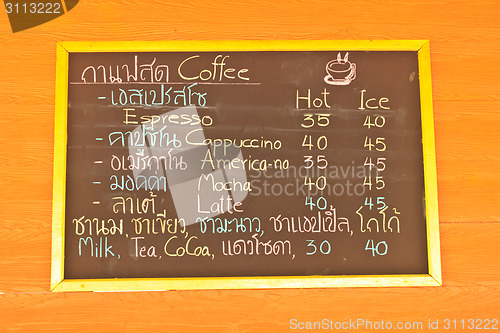 3113222
กาแฟสด Coffee
- เอสเปรสโซ Hot Ice
Espresso 35 40
- คาปูชิโน Cappuccino 40 45
- อเมริกาโน Americano 35 45
- มอคค่า Mocha 40 45
- ลาเต้ Latte 40 45
ชานม, ชาเขียว, ชามะนาว, ชาแอปเปิ้ล, โกโก้
Milk, Tea, CoCoa, แดงโซดา, 30 40
© lightkeeper / stockfresh
#3113222